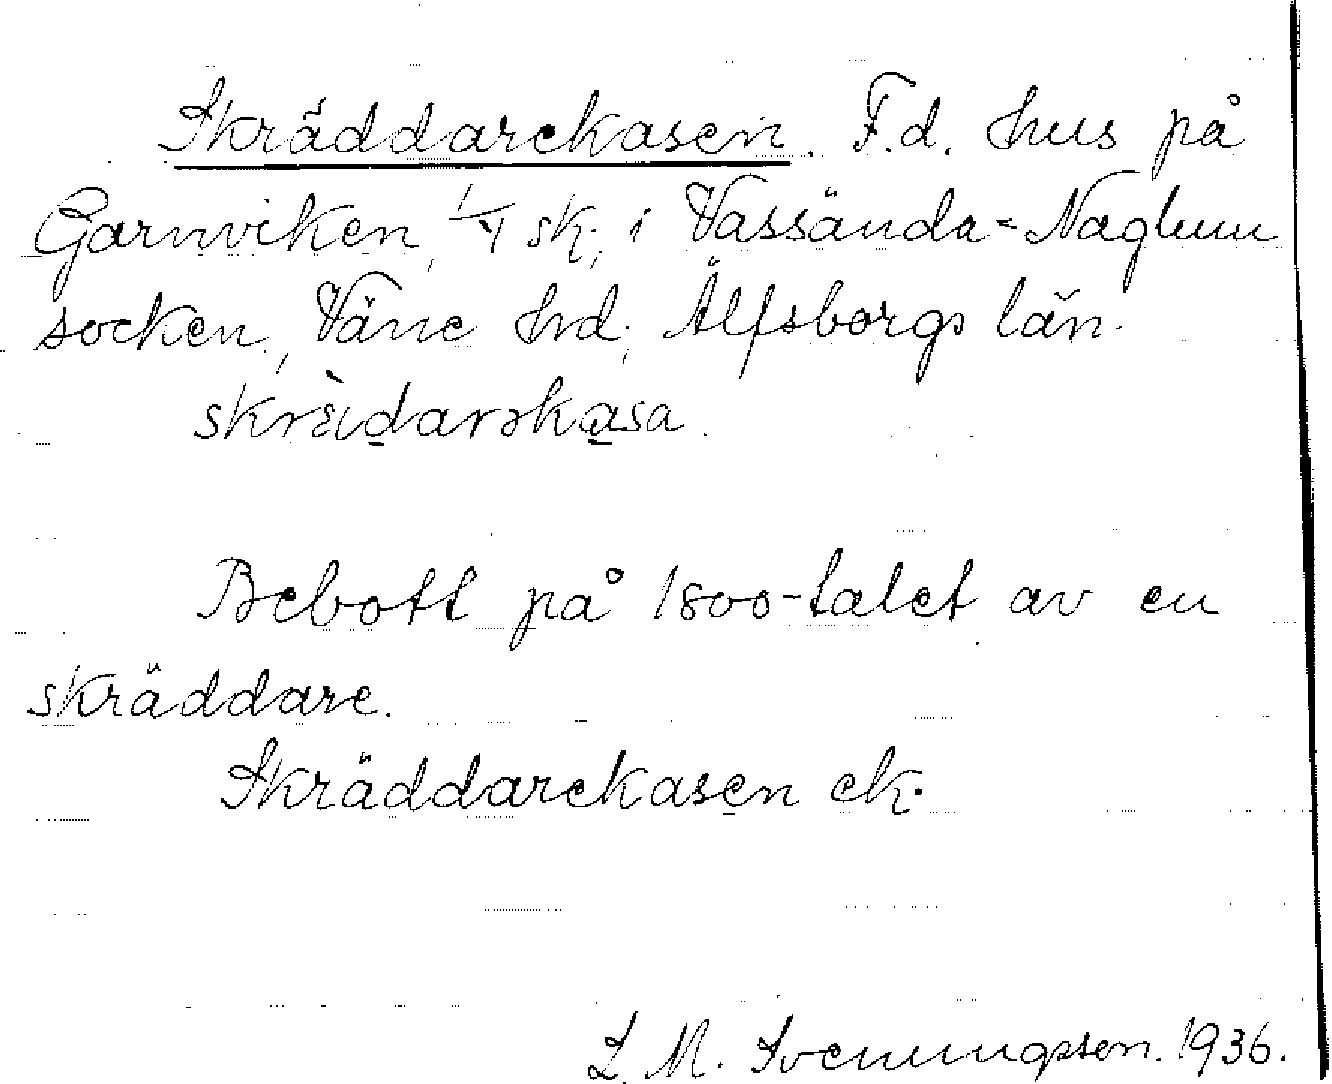 Skräddarekasen. F.d. hus på
Garnviken, 1/4 sk., i Vassända-Naglum
socken, Väne hrd, Älfsborgs län.
skrɛ̀ɪdarəkasa.
Bebott på 1800-talet av en
skräddare.
Skräddarekasen ek.
L. M. Svenungsson. 1936.